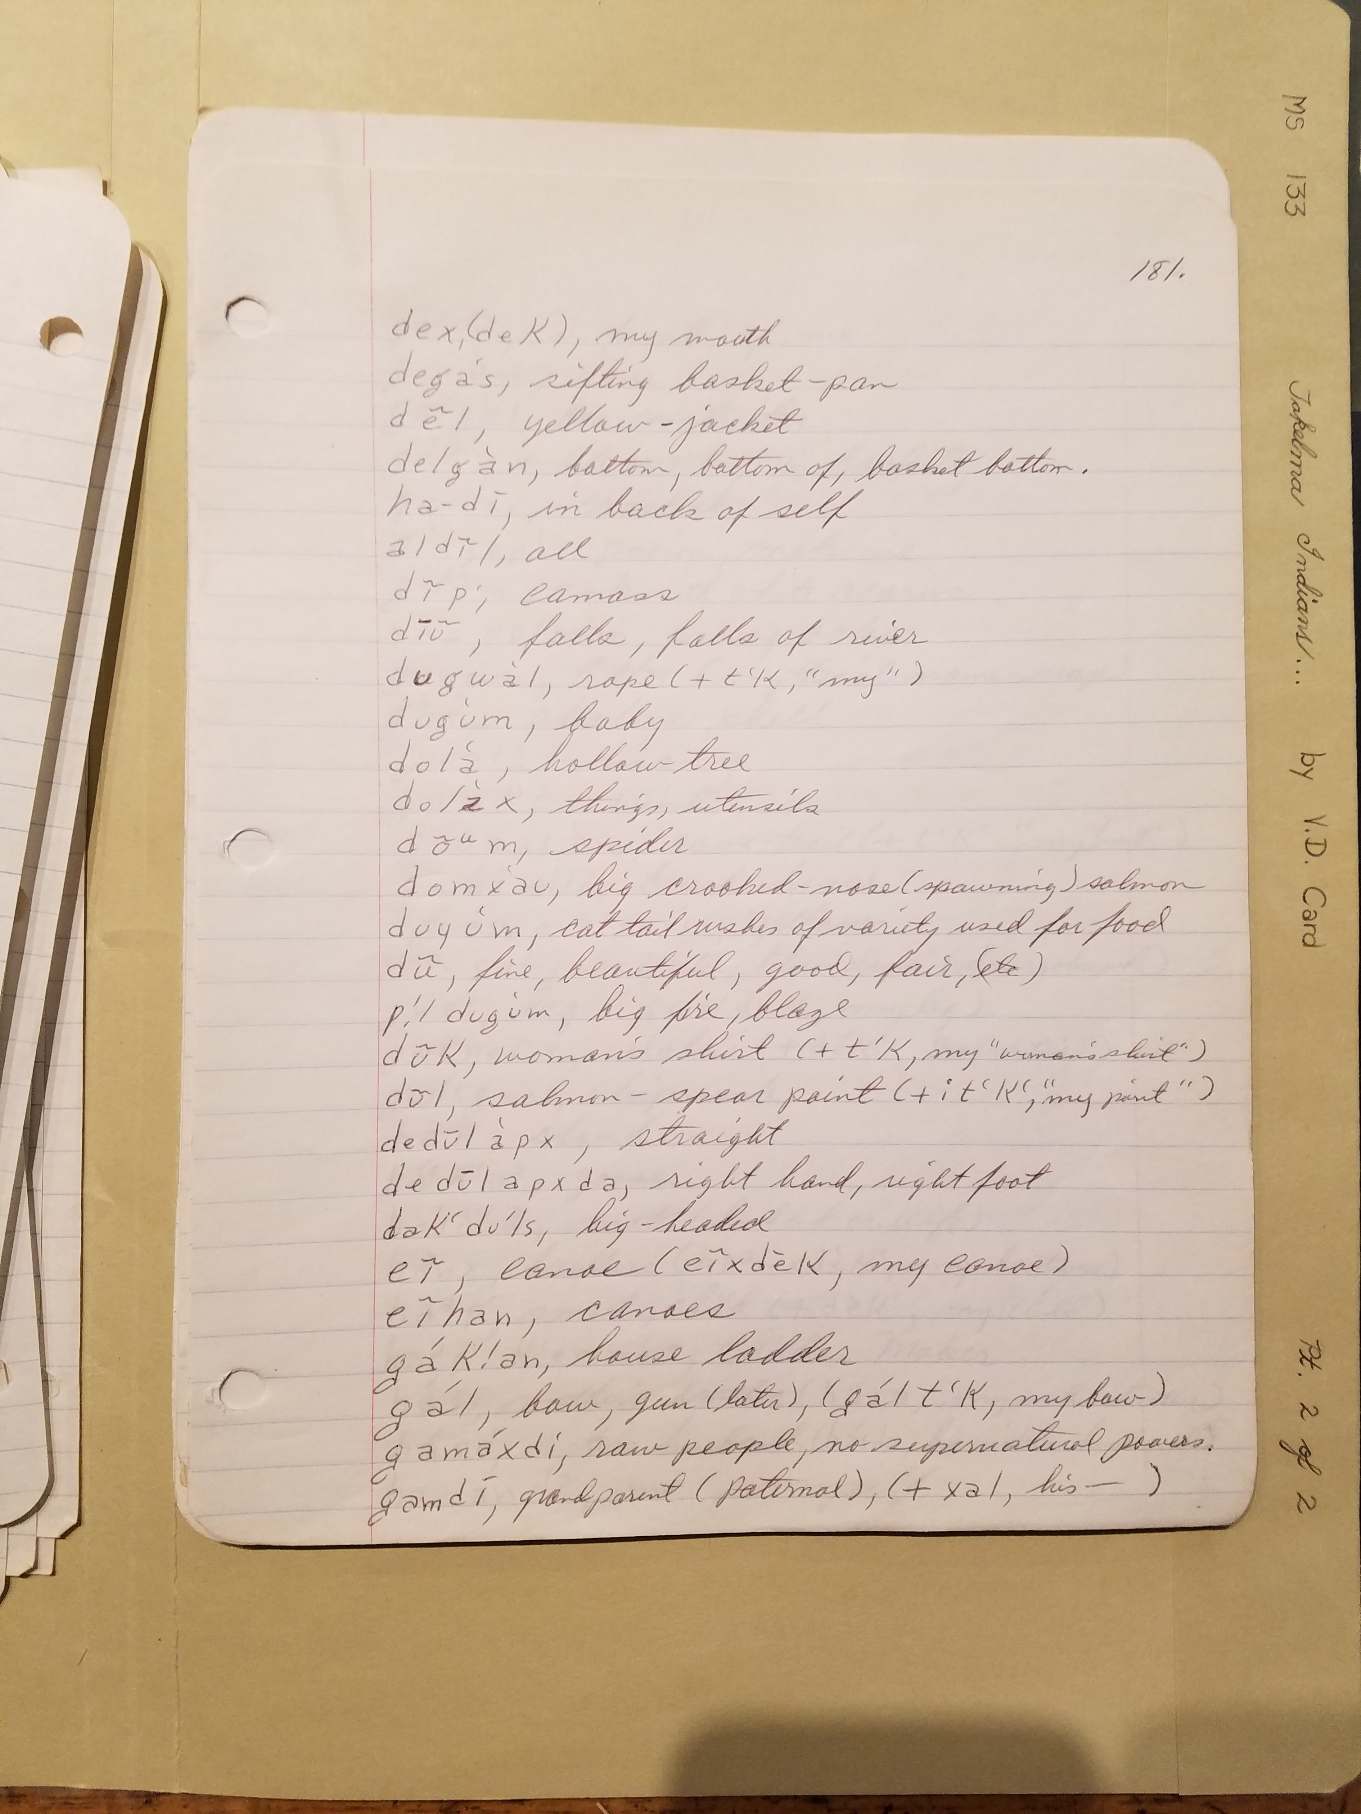 181.
dex,(deK), my mouth
degàs, sifting basket-pan
dẽl, yellow-jacket
delgàn, bottom, bottom of, basket bottom.
ha-dī, in back of self
aldĩl, all
dĩp‘, camass
dīũ, falls, falls of river
dugwàl, rope (+ t‘K, "my")
dugùm, baby
dolà, hollow-tree
dolàx, things, utensils
dõᵘm, spider
domxàu, big crooked-nose (spawning) salmon
duyùm, cat tail rushes of variety used for food
dũ, fine, beautiful, good, fair, (etc)
p!ī dugùm, big fire, blaze
dũK, woman's skirt (+ t‘K, my "woman's skirt")
dūl, salmon-spear point (+ it‘K‘, "my point")
dedūlàpx, straight
dedūlapxda, right hand, right foot
daK‘dú‘ls, big-headed
eĩ, canoe (eĩxdèK, my canoe)
eĩhan, canoes
gáK!an, house ladder
gál, bow, gun (later), (gált‘K, my bow)
gamáxdi, raw people, no supernatural powers.
gamdí, grandparent (paternal), (+ xal, his — )
MS 133 Takelma Indians... by V.D. Card Pt. 2 of 2